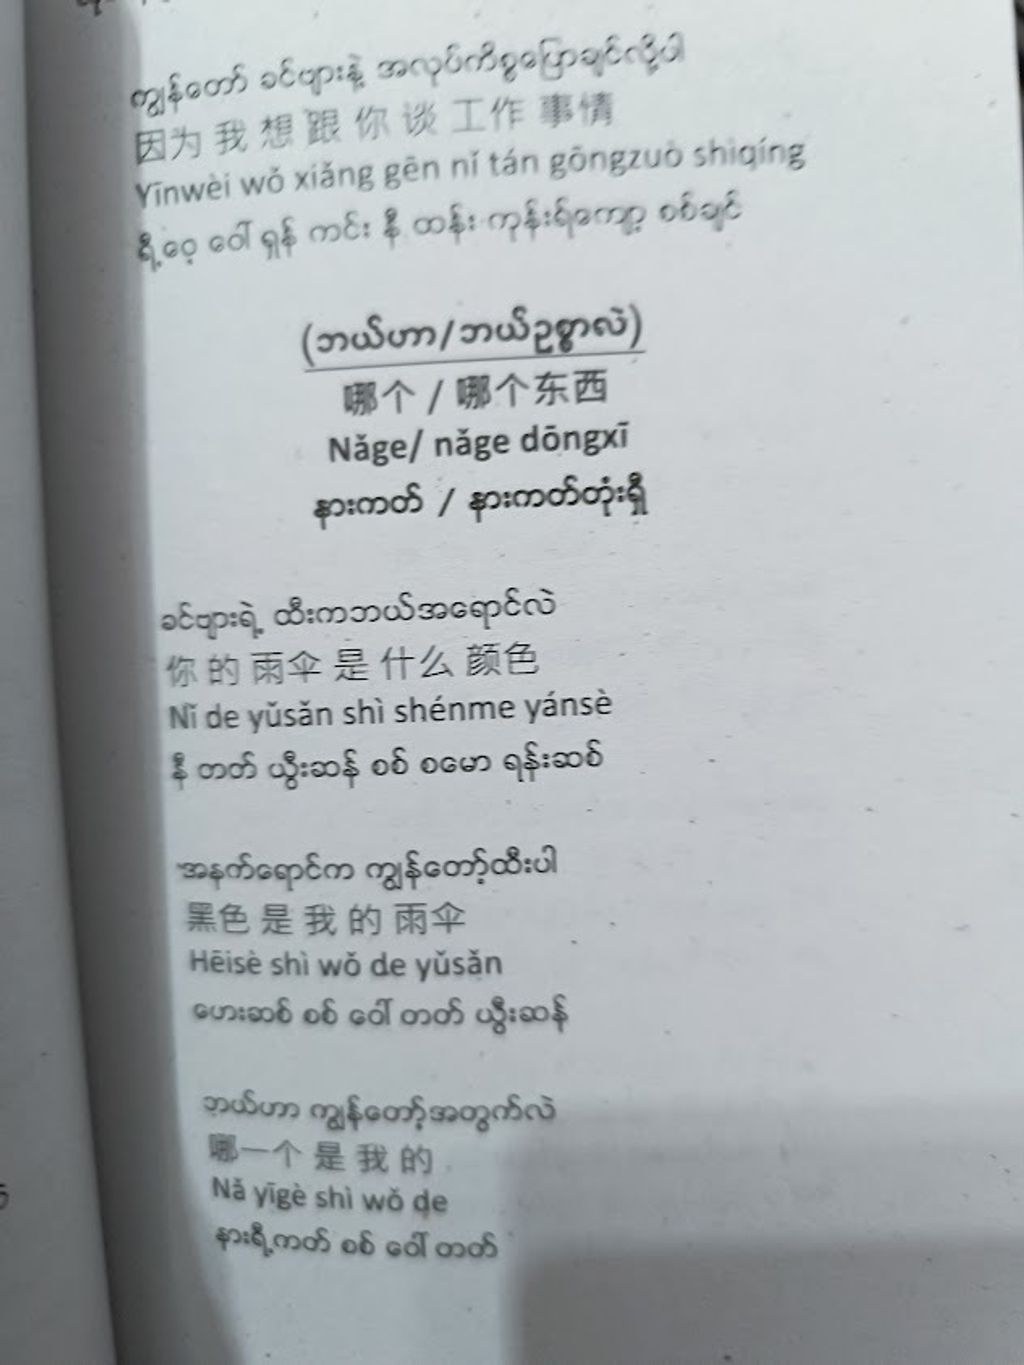 ကျွန်တော် ခင်ဗျားနဲ့ အလုပ်ကိစ္စပြောချင်လို့ပါ
因为 我 想 跟 你 谈 工作 事情
Yīnwèi wǒ xiǎng gēn nǐ tán gōngzuò shìqíng
ရီ့ဝေ့ ဝေါ် ရှန် ကင်း နီ ထန်း ကုန်းရ်ကျော့ စစ်ချင်
(ဘယ်ဟာ/ဘယ်ဥစ္စာလဲ)
哪个 / 哪个东西
Nǎge/ nǎge dōngxī
နားကတ် / နားကတ်တုံးရှီ
ခင်ဗျားရဲ့ ထီးကဘယ်အရောင်လဲ
你 的 雨伞 是 什么 颜色
Nǐ de yǔsǎn shì shénme yánsè
နီ တတ် ယွီးဆန် စစ် စမော ရန်းဆစ်
အနက်ရောင်က ကျွန်တော့်ထီးပါ
黑色 是 我 的 雨伞
Hēisè shì wǒ de yǔsǎn
ဟေးဆစ် စစ် ဝေါ် တတ် ယွီးဆန်
ဘယ်ဟာ ကျွန်တော့်အတွက်လဲ
哪一个 是 我 的
Nǎ yīgè shì wǒ de
နားရီ့ကတ် စစ် ဝေါ် တတ်